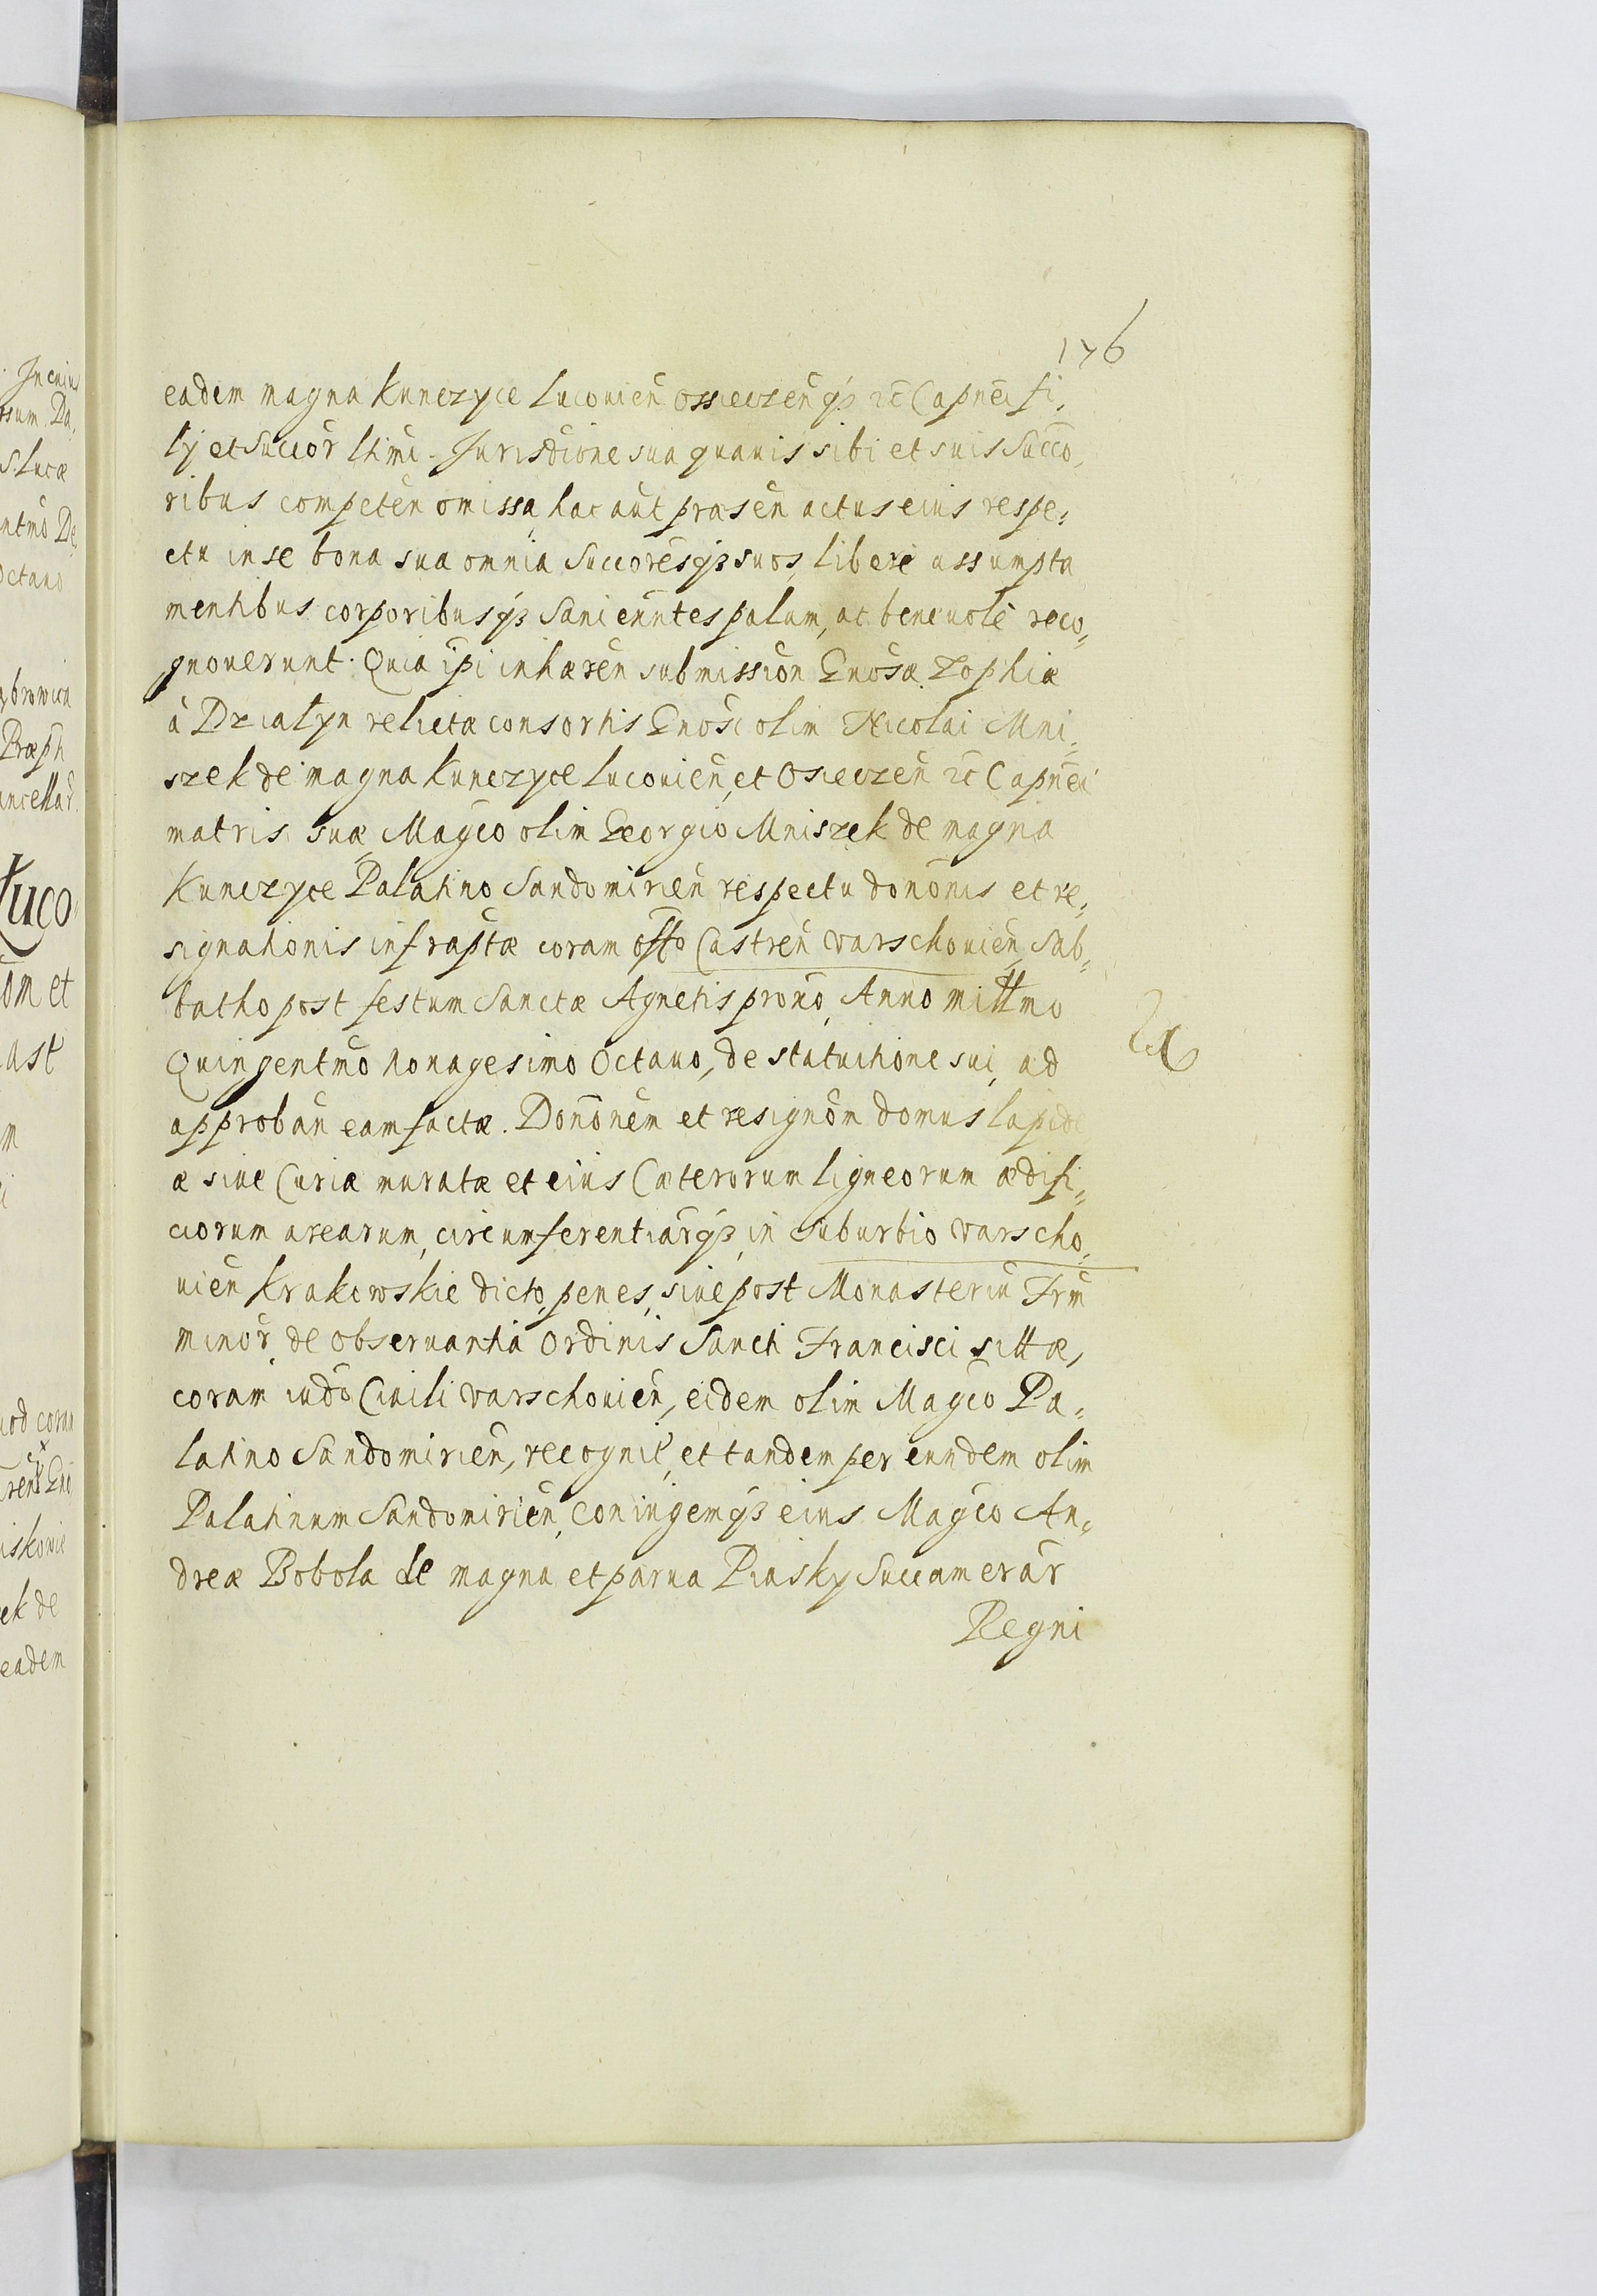 176
eadem magna Kunczyce Lucouien̄ Ossieczen̄qꝫ ꝛc̄ Capnei fi„
lij et Succor̄ ltimi. Jurisdc̄ione sua quauis sibi et suis Succo„
ribus competen̄ omissa, hac aūt præsen̄ actus eius respe„
ctu in se bona sua omnia Succoresqꝫ suos, libere assumpta
mentibus corporibusqꝫ Sani eūntes palam, ac beneuole reco„
gnouerunt. Quia ip̄i inhæren̄ submission̄ Gnosæ Zophiæ
à Dzialyn relictæ consortis Gnosi olim Nicolai Mni„
szek de magna Kunczyce Lucouien̄, et Osieczen̄ ꝛc̄ Capnei
matris suæ, Magc̄o olim Georgio Mniszek de magna
Kunczyce Palatino Sandomirien̄ respectu donōnis et re„
signationis infrap̄tæ coram off̄o Castren̄ Varschouien̄, Sab„
batho post festum Sanctæ Agnetis prono, Anno mill̄mo
Quingentm̄o nonagesimo Octauo, de statuitione sui, ad
approban̄ eam factæ. Donōnem et resignōm domus lapide
æ siue Curiæ muratæ et eius Cæterorum ligneorum ædifi„
ciorum arearum, circumferentiar̄qꝫ, in suburbio Varscho„
uien̄ Krakowskie dicto, penes, siue post Monasteriū Frm̄
minor̄ de obseruantia Ordinis Sancti Francisci sittæ,
coram iudō Ciuili Varschouien̄, eidem olim Magc̄o Pa„
latino Sandomirien̄, recognit̄, et tandem per eundem olim
Palatinum Sandomirien̄, Coniugemqꝫ eius Magc̄o An„
dreæ Bobola de magna et parua Piasky Succamerar̄
Regni